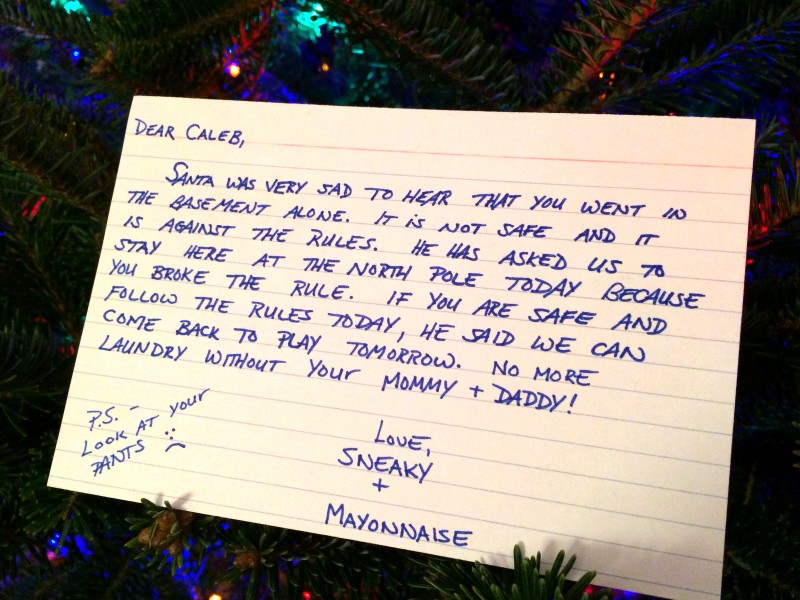 DEAR CALEB,
SANTA WAS VERY SAD TO HEAR THAT YOU WENT IN
THE BASEMENT ALONE. IT IS NOT SAFE AND IT
IS AGAINST THE RULES. HE HAS ASKED US TO
STAY HERE AT THE NORTH POLE TODAY BECAUSE
YOU BROKE THE RULE. IF YOU ARE SAFE AND
FOLLOW THE RULES TODAY, HE SAID WE CAN
COME BACK TO PLAY TOMORROW. NO MORE
LAUNDRY WITHOUT YOUR MOMMY + DADDY!
P.S. -
LOOK AT YOUR
PANTS :(
LOVE,
SNEAKY
+
MAYONNAISE